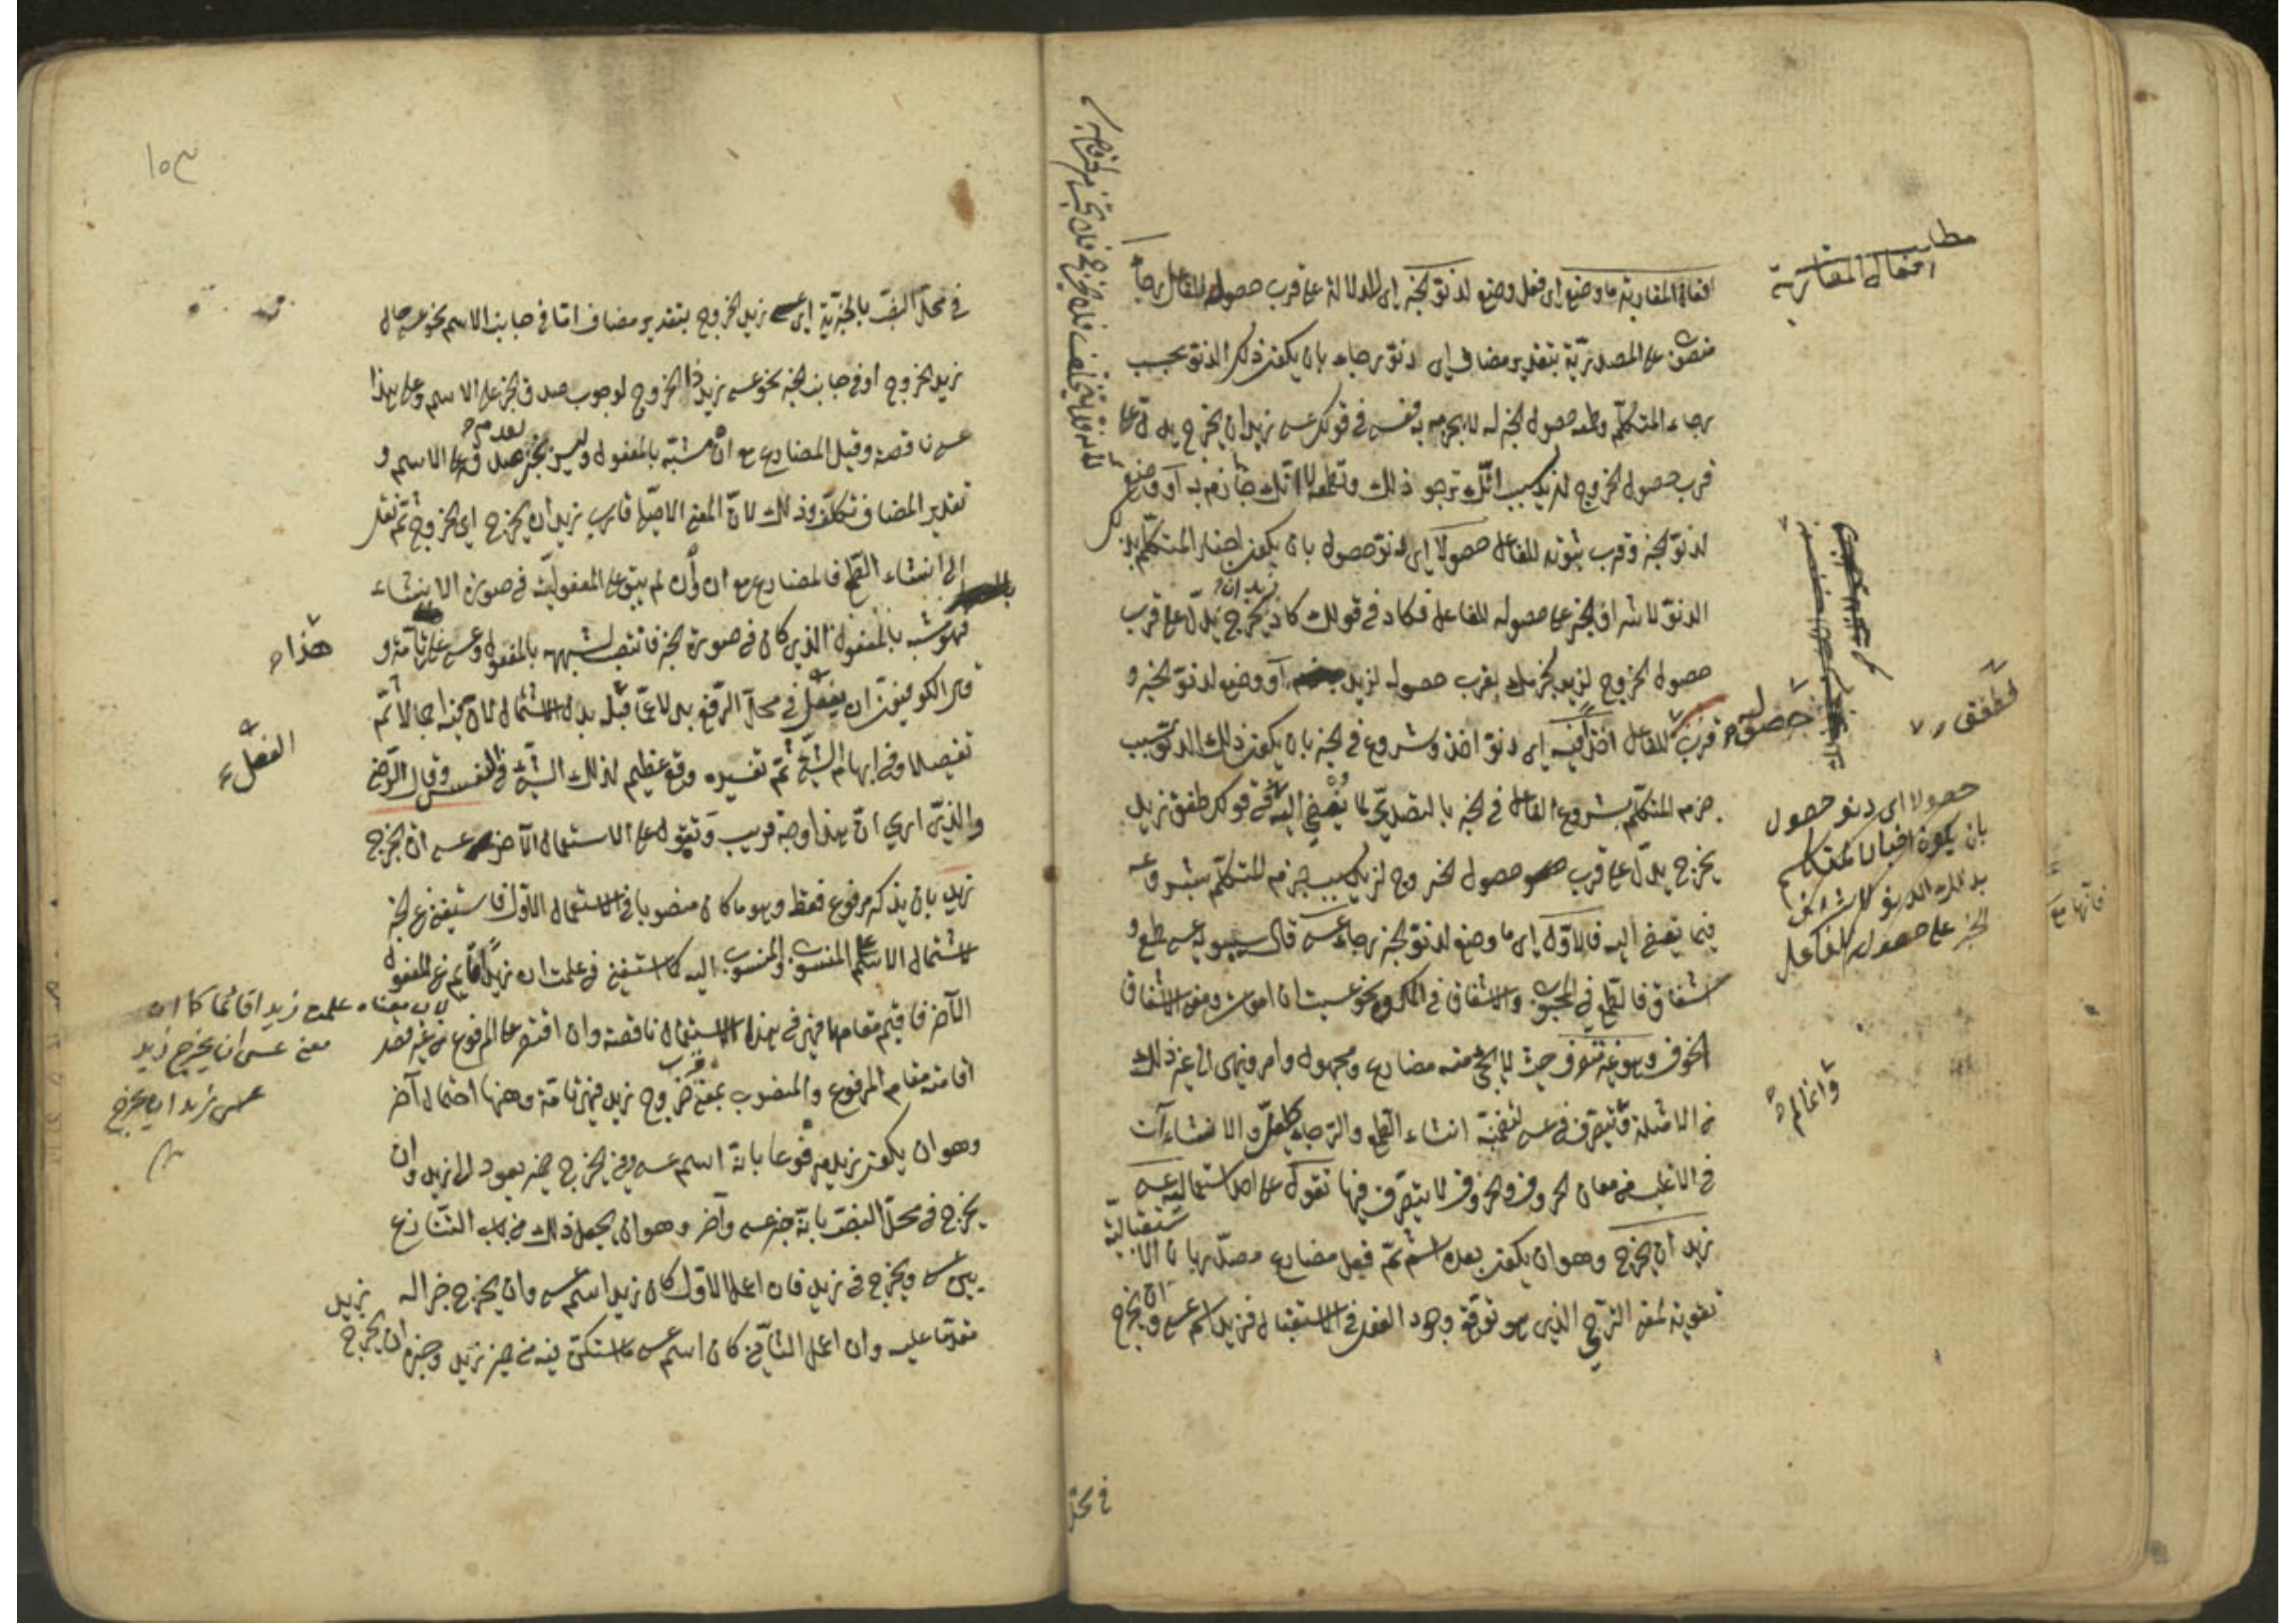 مطلب
افعال المقاربة
افعال المقاربة ما وضع اى فعل وضع لدنو الخبر اى للدلالة على قرب حصوله للفاعل رجاء
منصوب على المصدرية بتقدير مضاف اى دنو رجاء بان يكون ذلك الدنو بحسب
رجاء المتكلم وطمعه حصول الخبر له لا بجزمه به فعسى فى قولك عسى زيد ان يخرج يدل على
قرب حصول الخروج لزيد بسبب انك ترجو ذلك وتطمعه لا انك جازم به او وضع
لدنو الخبر وقرب ثبوته للفاعل حصولا اى دنو حصول بان يكون اخبار المتكلم بذلك
الدنو لاشراف الخبر على حصوله للفاعل فكاد فى قولك كاد زيد ان يخرج يدل على قرب
حصول الخروج لزيد بقرب حصوله لزيد او وضع لدنو الخبر و
قرب حصوله للفاعل اخذا فيه اى دنو اخذ وشروع فى الخبر بان يكون ذلك الدنو بسبب
جزم المتكلم بشروع الفاعل فى الخبر بالتصدى لما يفضى اليه فطفق فى قولك طفق زيد
يخرج يدل على قرب حصول الخروج لزيد بسبب جزم المتكلم بشروعه
فيما يفضى اليه فالاول اى ما وضع لدنو الخبر رجاء عسى قال سيبويه عسى طمع و
اشفاق فالطمع فى المحبوب والاشفاق فى المكروه نحو عسيت ان اموت ومعنى الاشفاق
الخوف وهو غير متصرف حيث لا يجئ منه مضارع ومجهول وامر ونهى الى غير ذلك
من الامثلة وانما لم يتصرف فى عسى لتضمنه انشاء الطمع والرجاء كلعل والانشاءآت
فى الاغلب من معانى الحروف والحروف لا يتصرف فيها تقول على احد استعماليه عسى
زيد ان يخرج وهو ان يكون بعده اسم ثم فعل مضارع مصدر بان الاستقبالية
تقوية لمعنى الترجى الذى هو توقع وجود الفعل فى الاستقبال فزيد اسم عسى وان يخرج
فى محل
حصولا اى دنو حصول
بان يكون اخبار المتكلم
بذلك الدنو لاشراف
الخبر على حصوله للفاعل
١٠٣
فى محل النصب بالخبرية اى عسى زيد الخروج بتقدير مضاف اما فى جانب الاسم نحو عسى حال
زيد الخروج او فى جانب الخبر نحو عسى زيد ذا الخروج لوجوب صدق الخبر على الاسم وعلى هذا
عسى ناقصة وقيل المضارع مع ان مشبه بالمفعول وليس بخبر لعدم صدقه على الاسم و
تقدير المضاف تكلف وذلك لان المعنى الاصلى قارب زيد ان يخرج اى الخروج ثم نقل
الى انشاء الطمع فالمضارع مع ان وان لم يبق على المفعولية فى صورة الانشاء
فهو شبه بالمفعول الذى كان فى صورة الخبر فانتصب لشبهه بالمفعول وعسى على هذا تامة و
قال الكوفيون ان يفعل فى محل الرفع بدلا عما قبله بدل الاشتمال لان فيه اجمالا ثم
تفصيلا وفى ابهام الشئ ثم تفسيره وقع عظيم لذلك الشئ فى النفس وقال الرضى
والذى ارى ان هذا وجه قريب وتقول على الاستعمال الآخر عسى ان يخرج
زيد بان يذكر مرفوع فقط وهو ما كان منصوبا فى الاستعمال الاول فاستغنى عن الخبر
لاشتمال الاسم على المنسوب والمنسوب اليه كما استغنى فى علمت ان زيدا قائم عن المفعول
الآخر فاقيم مقامهما فهى فى هذا الاستعمال ناقصة وان اقتصر على المرفوع من غير قصد
اقامته مقام المرفوع والمنصوب بمعنى قرب خروج زيد فهى تامة وههنا احتمال آخر
وهو ان يكون زيد مرفوعا بانه اسم عسى وفى يخرج ضمير يعود الى زيد وان
يخرج فى محل النصب بانه خبر عسى وآخر وهو ان يجعل ذلك من باب التنازع
بين عسى ويخرج فى زيد فان اعمل الاول كان زيد اسم عسى وان يخرج خبرا له
مقدما عليه وان اعمل الثانى كان اسم عسى ما استكن فيه من ضمير زيد وخبره ان يخرج
زيد
لان معناه علمت زيدا قائما كما ان
معنى عسى ان يخرج زيد
عسى زيد ان يخرج